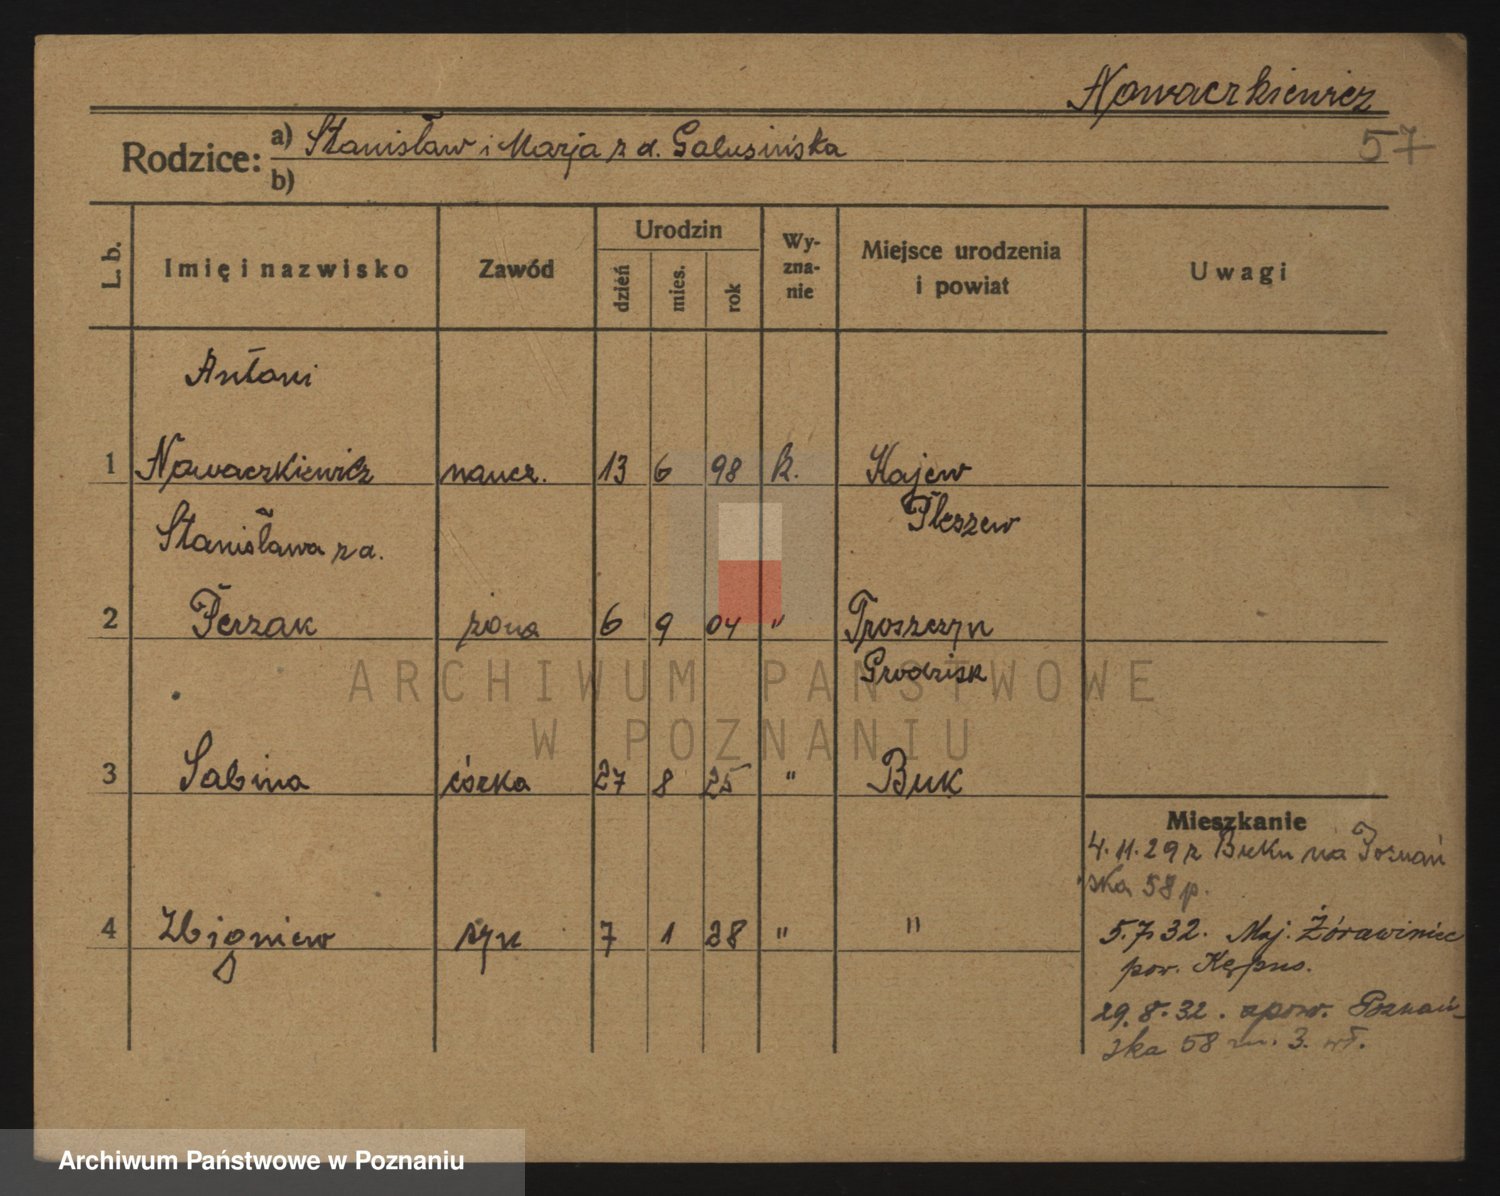 Nowaczkiewicz
57
Rodzice: a) Stanisław i Marja z d. Galusińska
b)
L. b. Imię i nazwisko Zawód Urodzin dzień mies. rok Wy-zna-nie Miejsce urodzenia i powiat Uwagi
Antoni
1 Nowaczkiewicz naucz. 13 6 98 k. Kajew
Pleszew
Stanisława z d.
2 Perzak żona 6 9 04 " Troszczyn
Grodzisk
ARCHIWUM PAŃSTWOWE
W POZNANIU
3 Sabina córka 27 8 25 " Buk
Mieszkanie
4.11.29 z Buku na Poznań
ska 58 p.
4 Zbigniew syn 7 1 28 " "
5.7.32. Maj. Żórawiniec
pow. Kępno.
29.8.32. zpow. Poznań-
ska 58 m. 3. wł.
Archiwum Państwowe w Poznaniu